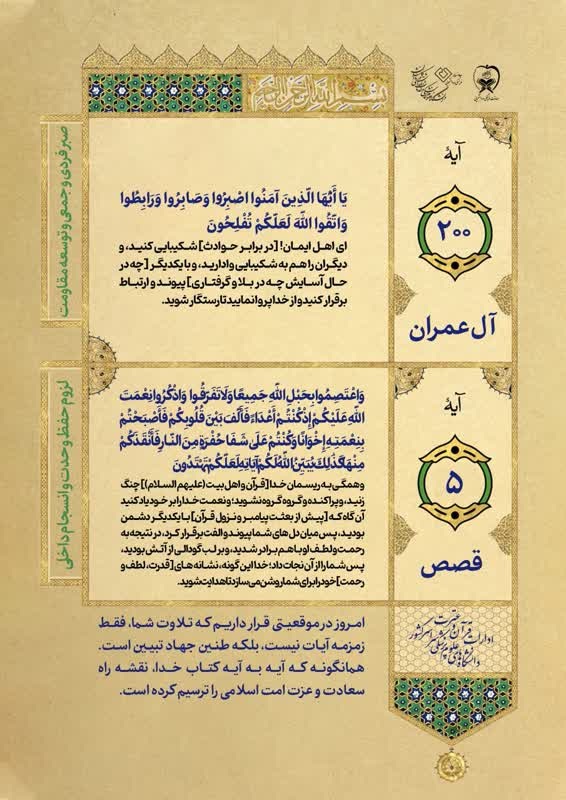 بسم الله الرحمن الرحیم
صبر فردی و جمعی و توسعه مقاومت
آیهٔ
۲۰۰
آل عمران
يَا أَيُّهَا الَّذِينَ آمَنُوا اصْبِرُوا وَصَابِرُوا وَرَابِطُوا
وَاتَّقُوا اللَّهَ لَعَلَّكُمْ تُفْلِحُونَ
ای اهل ایمان! [در برابر حوادث] شکیبایی کنید، و
دیگران را هم به شکیبایی وادارید، و با یکدیگر [چه در
حال آسایش چه در بلا و گرفتاری] پیوند و ارتباط
برقرار کنید و از خدا پروا نمایید تا رستگار شوید.
لزوم حفظ وحدت و انسجام داخلی
آیهٔ
۵
قصص
وَاعْتَصِمُوا بِحَبْلِ اللَّهِ جَمِيعًا وَلَا تَفَرَّقُوا وَاذْكُرُوا نِعْمَتَ
اللَّهِ عَلَيْكُمْ إِذْ كُنْتُمْ أَعْدَاءً فَأَلَّفَ بَيْنَ قُلُوبِكُمْ فَأَصْبَحْتُمْ
بِنِعْمَتِهِ إِخْوَانًا وَكُنْتُمْ عَلَى شَفَا حُفْرَةٍ مِنَ النَّارِ فَأَنْقَذَكُمْ
مِنْهَا كَذَلِكَ يُبَيِّنُ اللَّهُ لَكُمْ آيَاتِهِ لَعَلَّكُمْ تَهْتَدُونَ
و همگی به ریسمان خدا [قرآن و اهل بیت (علیهم السلام)] چنگ
زنید، و پراکنده و گروه گروه نشوید؛ و نعمت خدا را بر خود یاد کنید
آن گاه که [پیش از بعثت پیامبر و نزول قرآن] با یکدیگر دشمن
بودید، پس میان دل های شما پیوند و الفت برقرار کرد، در نتیجه به
رحمت و لطف او با هم برادر شدید، و بر لب گودالی از آتش بودید،
پس شما را از آن نجات داد؛ خدا این گونه، نشانه های [قدرت، لطف و
رحمت] خود را برای شما روشن می سازد تا هدایت شوید.
ادارات قرآن و عترت
دانشگاه های علوم پزشکی سراسر کشور
امروز در موقعیتی قرار داریم که تلاوت شما، فقط
زمزمه آیات نیست، بلکه طنین جهاد تبیین است.
همانگونه که آیه به آیه کتاب خدا، نقشه راه
سعادت و عزت امت اسلامی را ترسیم کرده است.